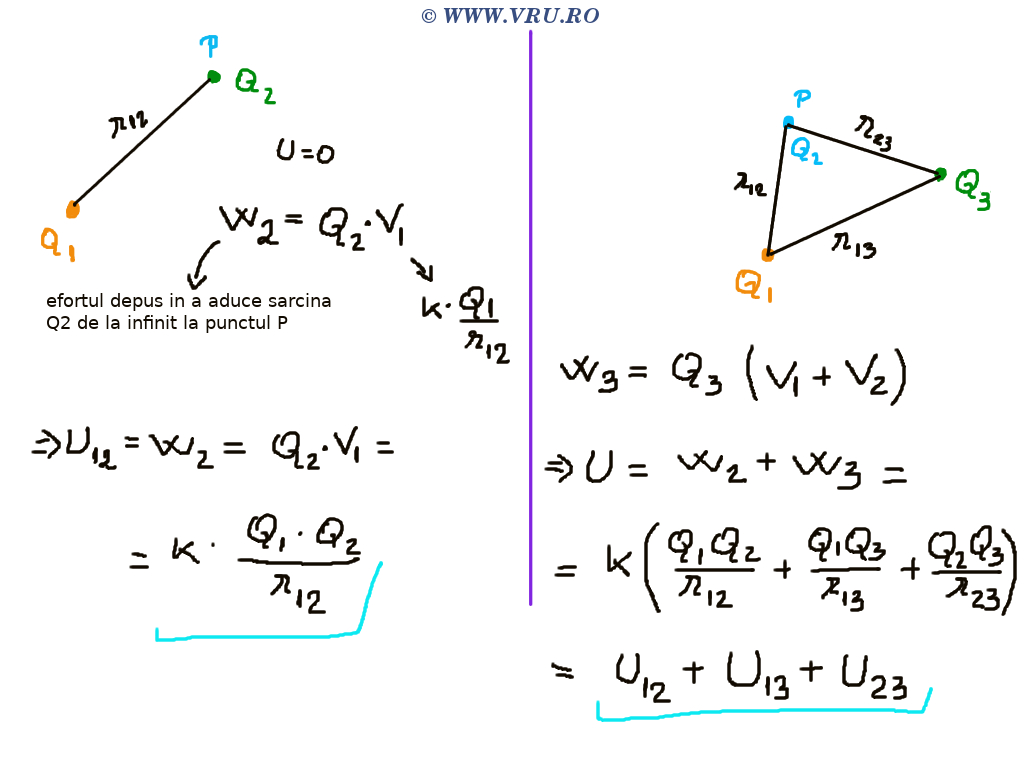 © WWW.VRU.RO
P
Q2
r12
U=0
Q1
W2 = Q2·V1
efortul depus in a aduce sarcina
Q2 de la infinit la punctul P
k· Q1/r12
⇒U12 = W2 = Q2·V1 =
= k · Q1 · Q2/r12
P
r23
Q2
r12
Q3
r13
Q1
W3 = Q3 (V1 + V2)
⇒ U = W2 + W3 =
= k (Q1Q2/r12 + Q1Q3/r13 + Q2Q3/r23)
= U12 + U13 + U23